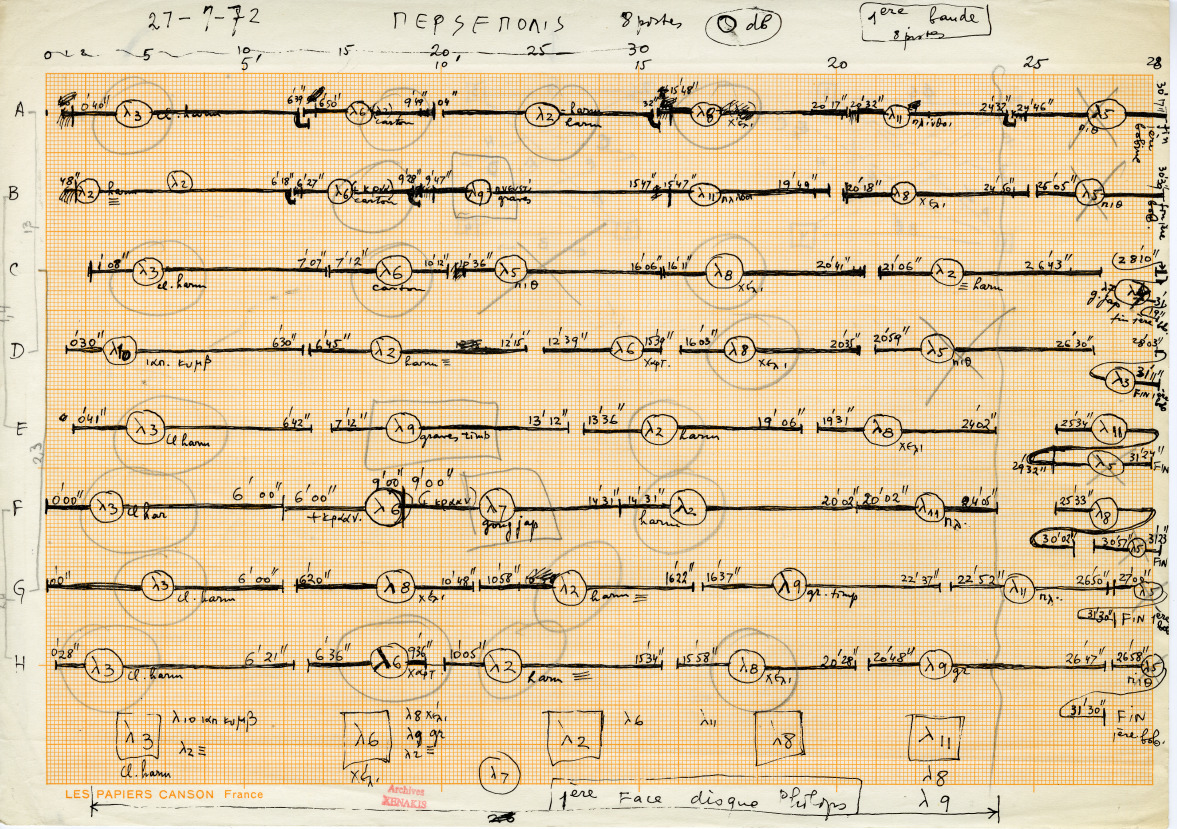 27-7-72 ΠΕΡΣΕΠΟΛΙΣ 8 postes 0 db 1ère bande 8 postes
0 1 2 5 10' 15 20' 25 30
5' 15 20 25 28
A 0'40" λ3 cl. harm 6'39" 6'50" λ6 carton 9'49" 04" λ2 harm 32" 15'48" λ8 χελι 20'17" 20'32" λ11 πλινθοι 24'32" 24'46" λ5 πιθ
B 48" λ2 harm ≡ λ2 6'18" 6'27" λ6 (+κραν) carton 9'28" 9'47" λ9 graves 15'47" 15'47" λ11 πλινθοι 19'49" 20'18" λ8 χελι 24'50" 25'05" λ5 πιθ
C 1'08" λ3 cl. harm 7'07" 7'12" λ6 carton 10'12" 10'36" λ5 πιθ 16'06" 16'11" λ8 χελι 20'41" 21'06" λ2 ≡ harm 26'43" (28'10"
λ7 g. jap
D 0'30" λ10 ιαπ. κυμβ 6'30" 6'45" λ2 harm ≡ 12'15" 12'39" λ6 χαρτ. 15'39" 16'03" λ8 χελι 20'35" 20'59" λ5 πιθ 26'30" 28'03"
λ3 31'11" FIN 1ère bob
E 0'41" λ3 cl harm 6'42" 7'12" λ9 graves timb 13'12" 13'36" λ2 harm 19'06" 19'31" λ8 χελι 24'02" 25'34" λ11
29'32" λ5 31'24" FIN
F 0'00" λ3 cl har 6'00" 6'00" +κρααν. 9'00" λ6 9'00" (+κρααν) λ7 gong jap 14'31" 14'31" harm λ2 20'02" 20'02" λ11 πλ. 24'05" 25'33" λ8
30'02" 30'57" λ5 31'23" FIN
G 0'0" λ3 cl. harm 6'00" 6'20" λ8 χελι 10'48" 10'58" λ2 harm ≡ 16'22" 16'37" λ9 gr. timp 22'37" 22'52" λ11 πλ. 26'50" 27'00" λ5
31'30" FIN 1ère bob
H 0'28" λ3 cl. harm 6'21" 6'36" λ6 χαρτ 9'36" 10'05" λ2 harm ≡ 15'34" 15'58" λ8 χελι 20'28" 20'48" λ9 gr 26'47" 26'58" λ5 πιθ
31'30" FIN 1ère bob.
λ3 λ10 ιαπ κυμβ λ6 λ8 χελι λ2 λ6 λ11 λ8 λ11
λ2 ≡ λ9 gr
λ2 ≡
cl. harm χελι λ7 λ8
LES PAPIERS CANSON France
Archives XENAKIS
1ère Face disque Philips λ9